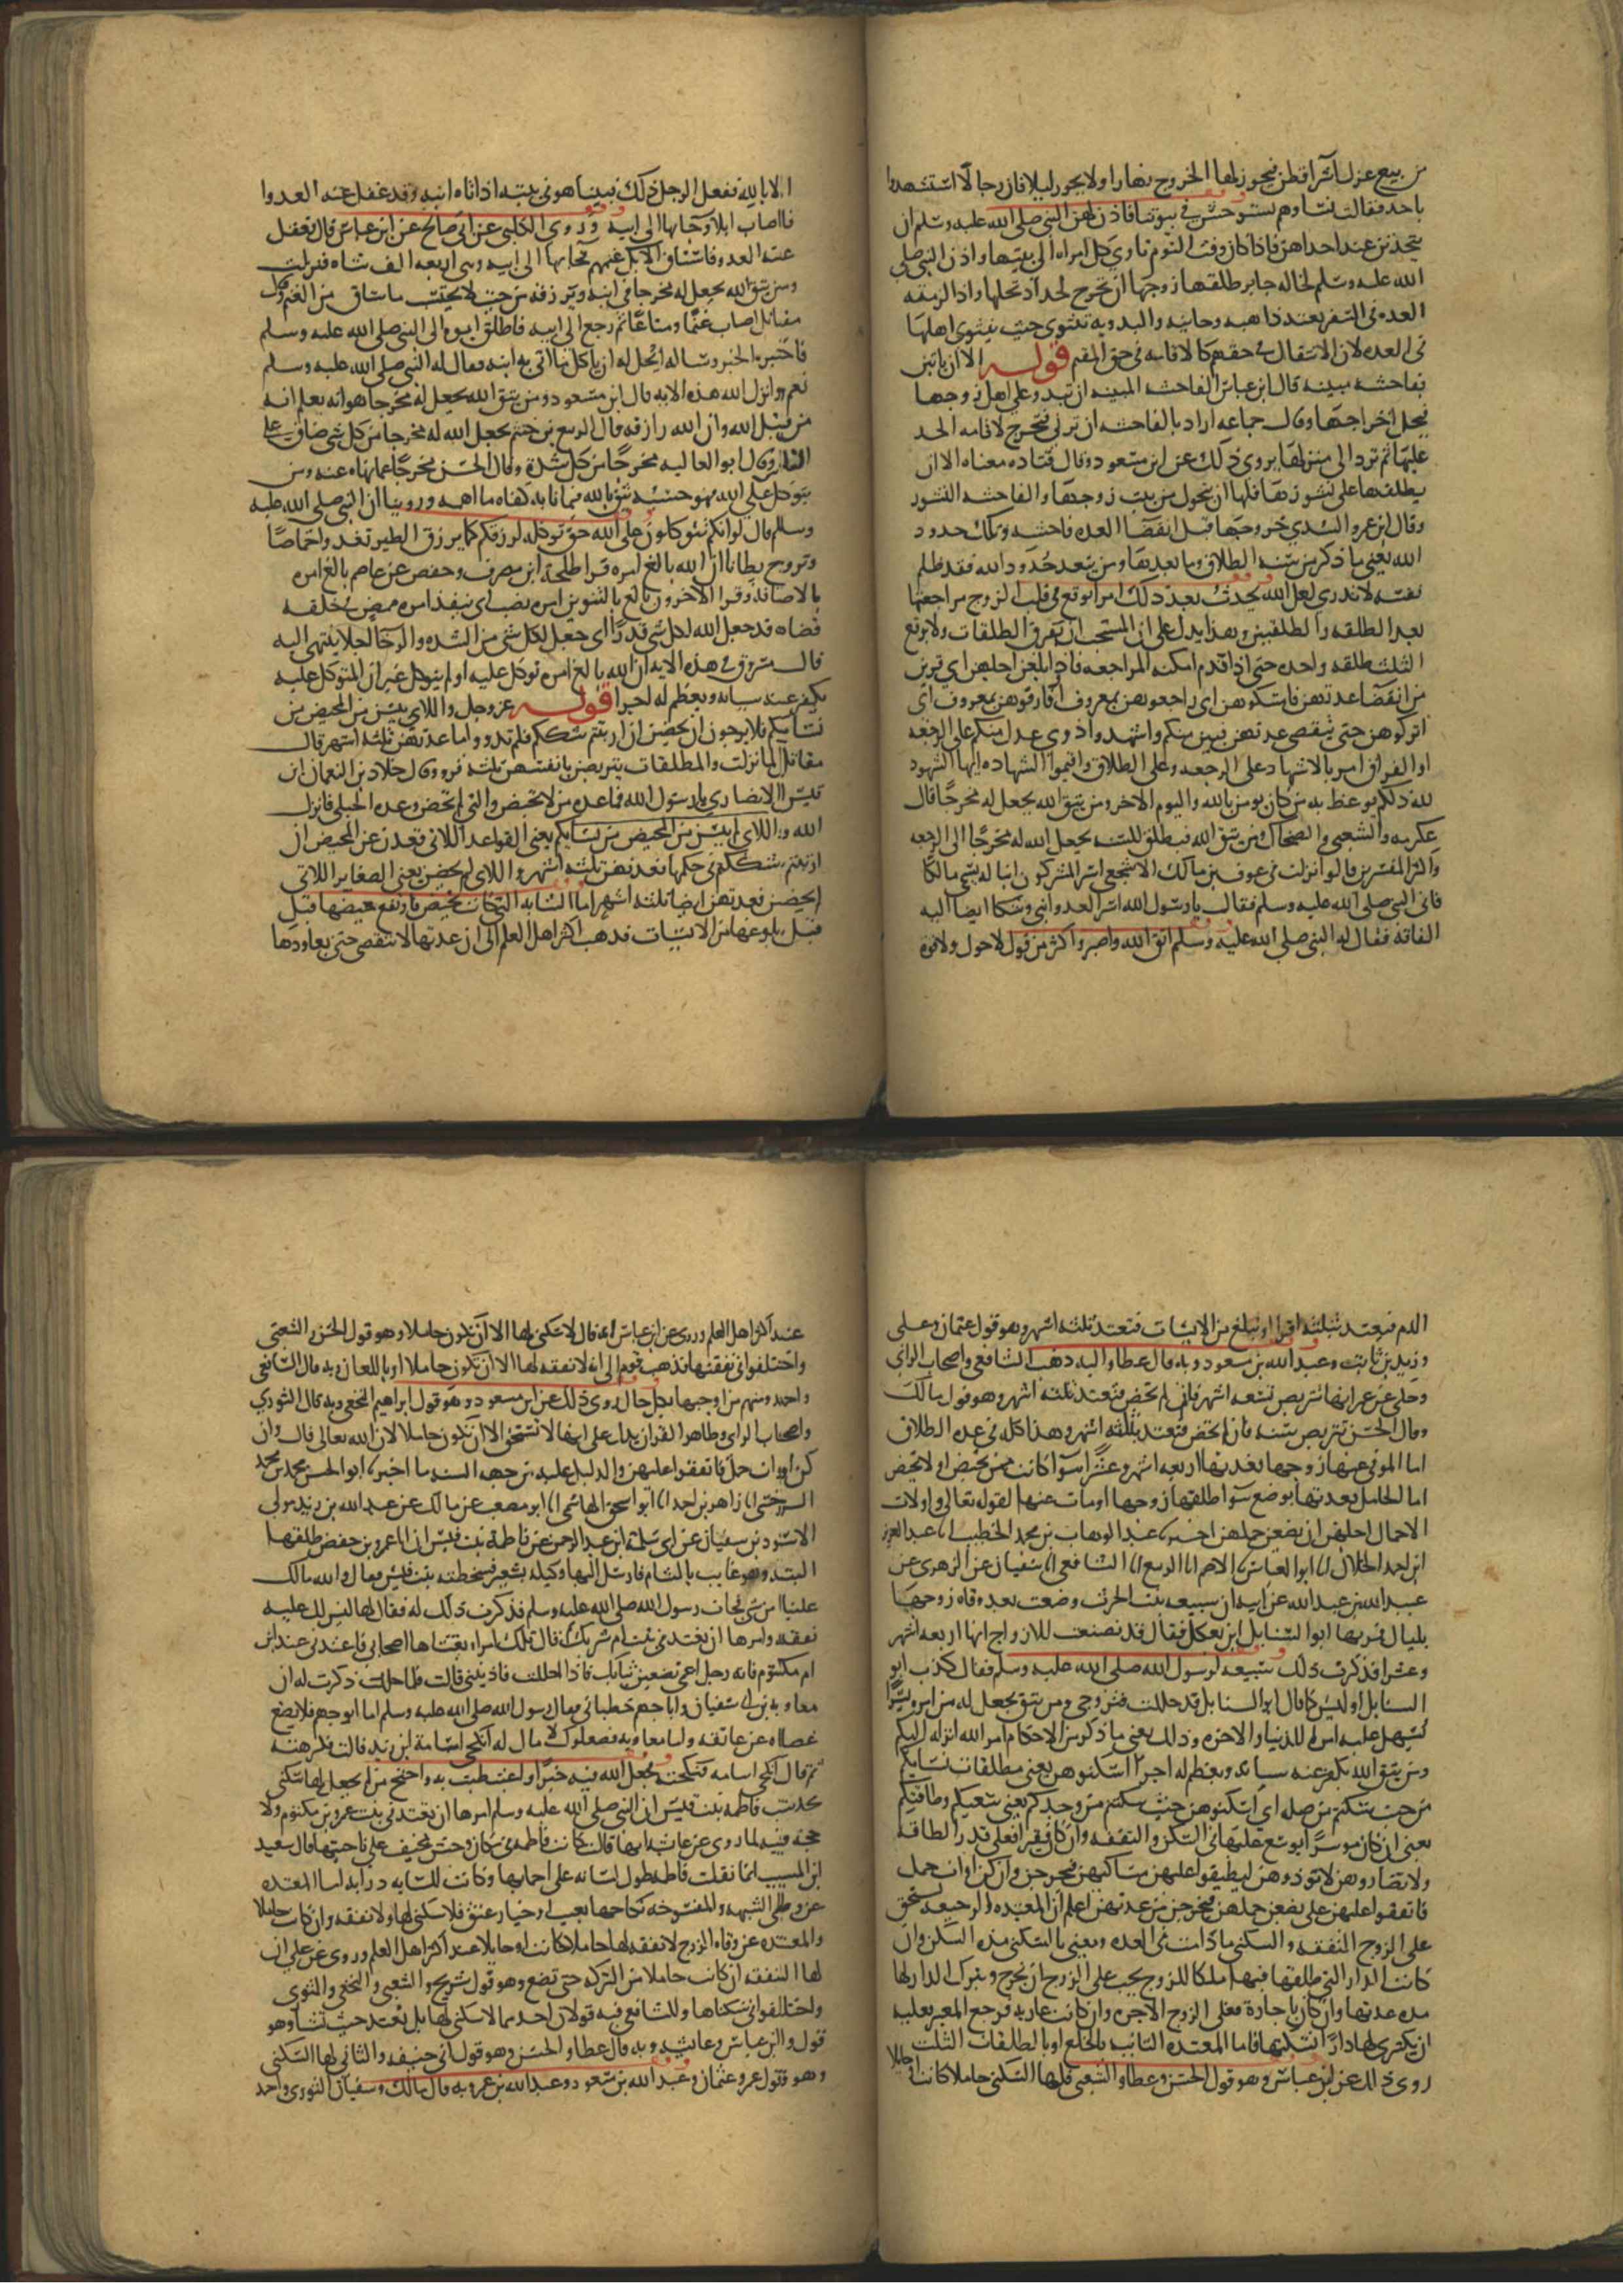 من بيع غزل او شرا قطن فيجوز لها الخروج نهارا ولا يجوز ليلا فان رجالا استشهدوا
باحد فقالت نساوهم نستوحش في بيوتنا فاذن لهن النبي صلى الله عليه وسلم ان
يتحدثن عند احداهن فاذا كان وقت النوم تاوي كل امراه الى بيتها واذن النبي صلى
الله عليه وسلم لخاله جابر طلقها زوجها ان تخرج لجداد نخلها واذا لزمته
العده في السفر تعتد ذاهبه وجائيه والبدويه تتبوى حيث يتبوى اهلها
في العده لان الانتقال في حقهم كالاقامه في حق المقيم قوله الا ان ياتين
بفاحشه مبينه قال ابن عباس الفاحشه المبينه ان تبدو على اهل زوجها
فيحل اخراجها وقال جماعه اراد بالفاحشه ان تزني فتخرج لاقامه الحد
عليها ثم ترد الى منزلها يروى ذلك عن ابن مسعود وقال قتاده معناه الا ان
يطلقها على نشوزها فلها ان تتحول من بيت زوجها والفاحشه النشوز
وقال ابن عمرو السدي خروجها قبل انقضا العده فاحشه وتلك حدود
الله يعني ما ذكر من سنه الطلاق وما بعدها ومن يتعد حدود الله فقد ظلم
نفسه لا تدري لعل الله يحدث بعد ذلك امرا يوقع في قلب الزوج مراجعتها
بعد الطلقه والطلقتين وهذا يدل على ان المستحب ان يفرق الطلقات ولا يوقع
الثلث طلقه واحده حتى اذا قدم امكنه المراجعه فاذا بلغن اجلهن اي قربن
من انقضا عدتهن فامسكوهن اي راجعوهن بمعروف او فارقوهن بمعروف اي
اتركوهن حتى تنقضي عدتهن فيبن منكم واشهدوا ذوي عدل منكم على الرجعه
او الفراق امر بالاشهاد على الرجعه وعلى الطلاق واقيموا الشهاده ايها الشهود
لله ذلكم يوعظ به من كان يومن بالله واليوم الاخر ومن يتق الله يجعل له مخرجا قال
عكرمه والشعبي والضحاك ومن يتق الله فيطلق للسنه يجعل الله له مخرجا الى الرجعه
واكثر المفسرين قالوا نزلت في عوف بن مالك الاشجعي اسر المشركون ابنا له يسمى مالكا
فاتى النبي صلى الله عليه وسلم فقال يا رسول الله اسر العدو ابني وشكا ايضا اليه
الفاقه فقال له النبي صلى الله عليه وسلم اتق الله واصبر واكثر من قول لا حول ولا قوه
الا بالله ففعل الرجل ذلك فبينما هو في بيته اذ اتاه ابنه وقد غفل عنه العدوا
فاصاب ابلا وجا بها الى ابيه وروى الكلبي عن ابي صالح عن ابن عباس قال تغفل
عنه العدو فاستاق الابل غنمهم فجا بها الى ابيه وهي اربعه الف شاه فنزلت
ومن يتق الله يجعل له مخرجا في ابنه ويرزقه من حيث لا يحتسب ما ساق من الغنم وقال
مقاتل اصاب غنما ومتاعا ثم رجع الى ابيه فانطلق ابوه الى النبي صلى الله عليه وسلم
فاخبره الخبر وساله ايحل له ان ياكل مما اتى به ابنه فقال له النبي صلى الله عليه وسلم
نعم وانزل الله هذه الايه قال ابن مسعود ومن يتق الله يجعل له مخرجا هو انه يعلم انه
من قبل الله وان الله رازقه قال الربيع بن خثيم يجعل الله له مخرجا من كل شي ضاق على
الناس وقال ابو العاليه مخرجا من كل شده وقال الحسن مخرجا عما نهاه عنه ومن
يتوكل على الله فهو حسبه يثق بالله فيما نابه كفاه ما اهمه وروينا ان النبي صلى الله عليه
وسلم قال لو انكم تتوكلون على الله حق توكله لرزقكم كما يرزق الطير تغدوا خماصا
وتروح بطانا ان الله بالغ امره قرا طلحه ابن مصرف وحفص عن عاصم بالغ امره
بالاضافه وقرا الاخرون بالغ بالتنوين امره نصب اي ينفذ امره ممض في خلقه
قضاه قد جعل الله لكل شي قدرا اي جعل لكل شي من الشده والرخا اجلا ينتهي اليه
قال مسروق في هذه الايه ان الله بالغ امره توكل عليه او لم يتوكل غير ان المتوكل عليه
يكفر عنه سياته ويعظم له اجرا قوله عز وجل واللاي يئسن من المحيض من
نسايكم فلا يرجون ان يحضن ان ارتبتم شككتم فلم تدروا ما عدتهن فعدتهن ثلثه اشهر قال
مقاتل لما نزلت والمطلقات يتربصن بانفسهن ثلثه قرو قال خلاد بن النعمان ابن
قيس الانصاري يا رسول الله فما عده من لا تحيض والتي لم تحض وعده الحبلى فانزل
الله واللاي يئسن من المحيض من نسايكم يعني القواعد اللاتي قعدن عن المحيض ان
ارتبتم شككتم في حكمها فعدتهن ثلثه اشهر واللاي لم يحضن يعني الصغاير اللاتي
لم يحضن فعدتهن ايضا ثلثه اشهر اما الشابه التي كانت تحيض فارتفع حيضها قبل
قبل بلوغها سن الايسات فذهب اكثر اهل العلم الى ان عدتها لا تنقضي حتى يعاودها
الدم فتعتد بثلثه اقرا او تبلغ سن الايسات فتعتد ثلثه اشهر وهو قول عثمان وعلي
وزيد بن ثابت وعبد الله بن مسعود وبه قال عطا واليه ذهب الشافعي واصحاب الراي
وحكي عن عمر انها تتربص تسعه اشهر فان لم تحض فتعتد ثلثه اشهر وهو قول مالك
وقال الحسن تتربص سنه فان لم تحض فتعتد بثلثه اشهر وهذا كله في عده الطلاق
اما المتوفى عنها زوجها فعدتها اربعه اشهر وعشرا سوا كانت ممن تحيض او لا تحيض
اما الحامل فعدتها بوضع سوا طلقها زوجها او مات عنها لقوله تعالى واولات
الاحمال اجلهن ان يضعن حملهن اخبرنا عبد الوهاب بن محمد الخطيب انا عبد العزيز
ابن احمد الخلال انا ابو العباس الاصم انا الربيع انا الشافعي انا سفيان عن الزهري عن
عبيد الله بن عبد الله عن ابيه ان سبيعه بنت الحرث وضعت بعد وفاه زوجها
بليال فمر بها ابو السنابل ابن بعكك فقال قد تصنعت للازواج انها اربعه اشهر
وعشرا فذكرت ذلك سبيعه لرسول الله صلى الله عليه وسلم فقال كذب ابو
السنابل او ليس كما قال ابو السنابل قد حللت فتزوجي ومن يتق يجعل له من امره يسرا
يسهل عليه امر الدنيا والاخره وذلك يعني ما ذكر من الاحكام امر الله انزله اليكم
ومن يتق الله يكفر عنه سياته ويعظم له اجرا اسكنوهن يعني مطلقات نسايكم
من حيث سكنتم من صله اي اسكنوهن حيث سكنتم من وجدكم يعني سعتكم وطاقتكم
يعني ان كان موسرا يوسع عليها في السكن والنفقه وان كان فقيرا فعلى قدر الطاقه
ولا تضاروهن لا توذوهن لتضيقوا عليهن مساكنهن فيخرجن وان كن اولات حمل
فانفقوا عليهن حتى يضعن حملهن فيخرجن من عدتهن اعلم ان المعتده الرجعيه تستحق
على الزوج النفقه والسكنى ما دامت في العده ونعني بالسكنى مؤنه السكن وان
كانت الدار التي طلقها فيها ملكا للزوج يجب على الزوج ان يخرج ويترك الدار لها
مده عدتها وان كان باجاره فعلى الزوج الاجره وان كانت عاريه فرجع المعير فعليه
ان يكتري لها دارا تسكنها فاما المعتده البائنه بالخلع او بالطلقات الثلث
روي ذلك عن ابن عباس وهو قول الحسن وعطا والشعبي فلها السكنى حاملا كانت او حايلا
عند اكثر اهل العلم وروي عن ابن عباس انه قال لا سكنى لها الا ان تكون حاملا وهو قول الحسن والشعبي
واختلفوا في نفقتها فذهب قوم الى انه لا نفقه لها الا ان تكون حاملا او باللعان وبه قال الشافعي
واحمد ومنهم من اوجبها بكل حال روي ذلك عن ابن مسعود وهو قول ابراهيم النخعي وبه قال الثوري
واصحاب الراي وظاهر القران يدل على انها لا تستحق الا ان تكون حاملا لان الله تعالى قال وان
كن اولات حمل فانفقوا عليهن والدليل عليه من جهه السنه ما اخبرنا ابو الحسن محمد بن محمد
السرخسي انا زاهر بن احمد انا ابو اسحق الهاشمي انا ابو مصعب عن مالك عن عبد الله بن يزيد مولى
الاسود بن سفيان عن ابي سلمه ابن عبد الرحمن عن فاطمه بنت قيس ان ابا عمرو بن حفص طلقها
البته وهو غايب بالشام فارسل اليها وكيله بشعير فسخطته بنت قيس فقال والله مالك
علينا من شي فجات رسول الله صلى الله عليه وسلم فذكرت ذلك له فقال لها ليس لك عليه
نفقه وامرها ان تعتد في بيت ام شريك ثم قال تلك امراه يغشاها اصحابي فاعتدي عند ابن
ام مكتوم فانه رجل اعمى تضعين ثيابك فاذا احللت فاذنيني قالت فلما حللت ذكرت له ان
معاويه بن ابي سفيان وابا جهم خطباني فقال رسول الله صلى الله عليه وسلم اما ابو جهم فلا يضع
عصاه عن عاتقه واما معاويه فصعلوك لا مال له انكحي اسامه ابن زيد قالت فكرهته
ثم قال انكحي اسامه فنكحته فجعل الله فيه خيرا واغتبطت به واحتج من لم يجعل لها سكنى
بحديث فاطمه بنت قيس ان النبي صلى الله عليه وسلم امرها ان تعتد في بيت عمرو بن مكتوم ولا
حجه فيه لما روي عن عائشه انها قالت كانت فاطمه في مكان وحش فخيف على ناحيتها قال سعيد
ابن المسيب انما نقلت فاطمه لطول لسانها على احمايها وكانت للسانه ذرابه اما المعتده
عن وطي الشبهه والمفسوخه نكاحها بعيب او خيار عتق فلا سكنى لها ولا نفقه وان كانت حاملا
والمعتده عن وفاه الزوج لا نفقه لها حاملا كانت او حايلا عند اكثر اهل العلم وروي عن علي ان
لها النفقه ان كانت حاملا من التركه حتى تضع وهو قول شريح والشعبي والنخعي والثوري
واختلفوا في سكناها وللشافعي فيه قولان احدهما لا سكنى لها بل تعتد حيث تشا وهو
قول وابن عباس وعايشه وبه قال عطا والحسن وهو قول ابي حنيفه والثاني لها السكنى
وهو قول عمر وعثمان وعبد الله بن مسعود وعبد الله بن عمر وبه قال مالك وسفيان الثوري واحمد